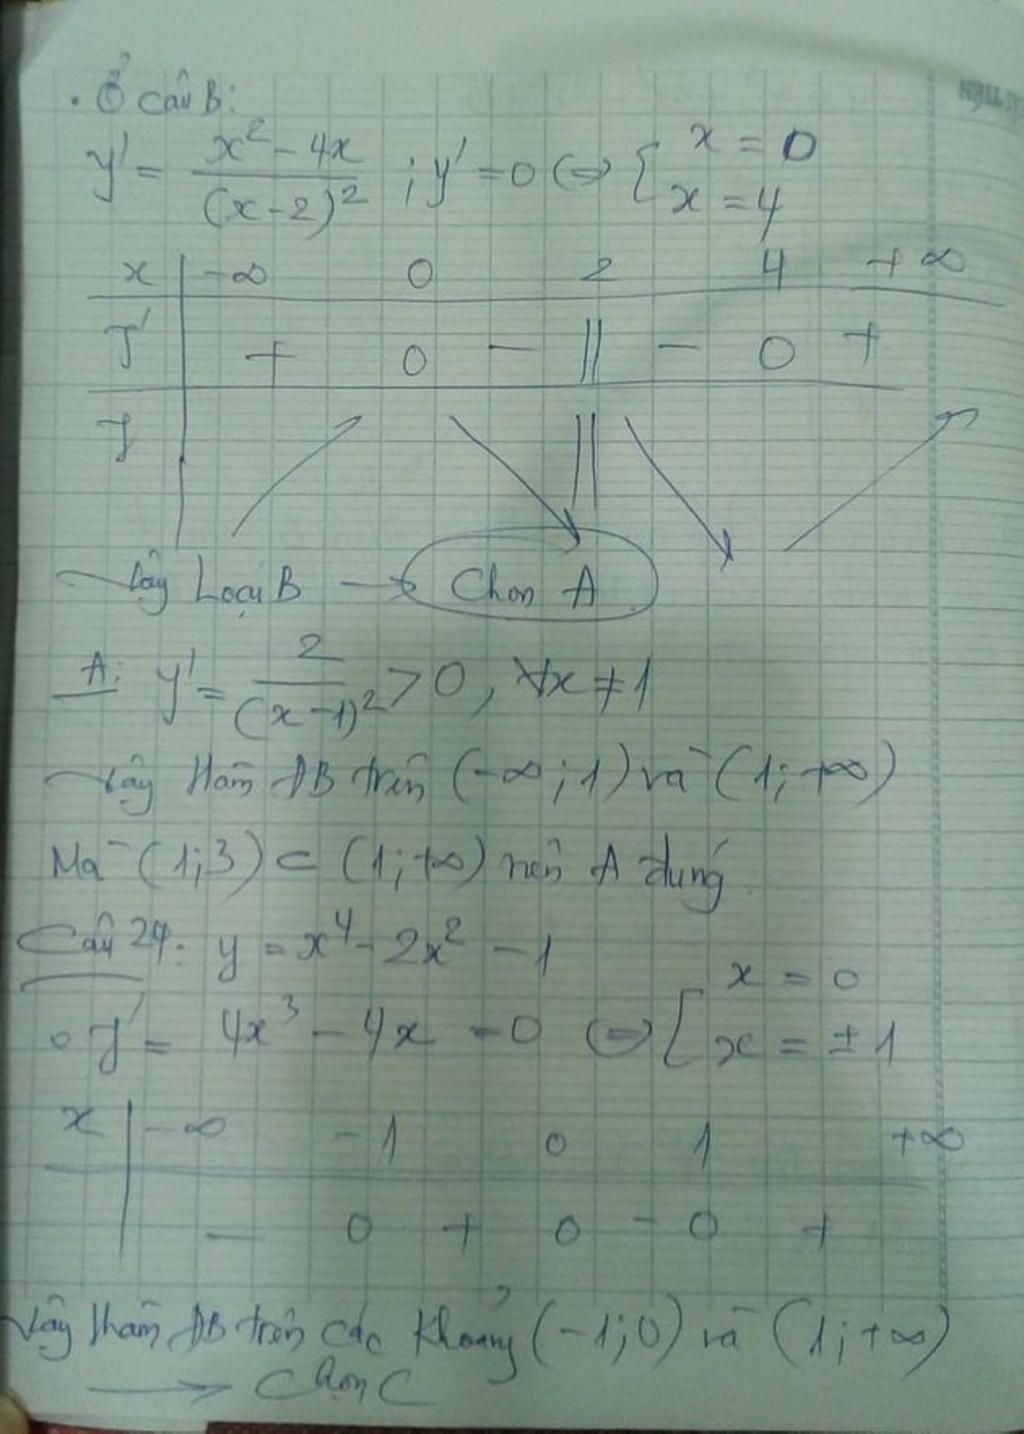 . Ở câu B:
y' = x² - 4x / (x-2)² ; y' = 0 ⇔ [ x = 0
x = 4
x -∞ 0 2 4 +∞
y' + 0 - || - 0 +
y
Vậy Loại B → Chọn A
A: y' = 2 / (x-1)² > 0, ∀x ≠ 1
Vậy Hàm ĐB trên (-∞; 1) và (1; +∞)
Mà (1; 3) ⊂ (1; +∞) nên A đúng
Câu 24: y = x⁴ - 2x² - 1
o y' = 4x³ - 4x = 0 ⇔ [ x = 0
x = ±1
x -∞ -1 0 1 +∞
- 0 + 0 - 0 +
Vậy Hàm ĐB trên các khoảng (-1; 0) và (1; +∞)
→ Chọn C